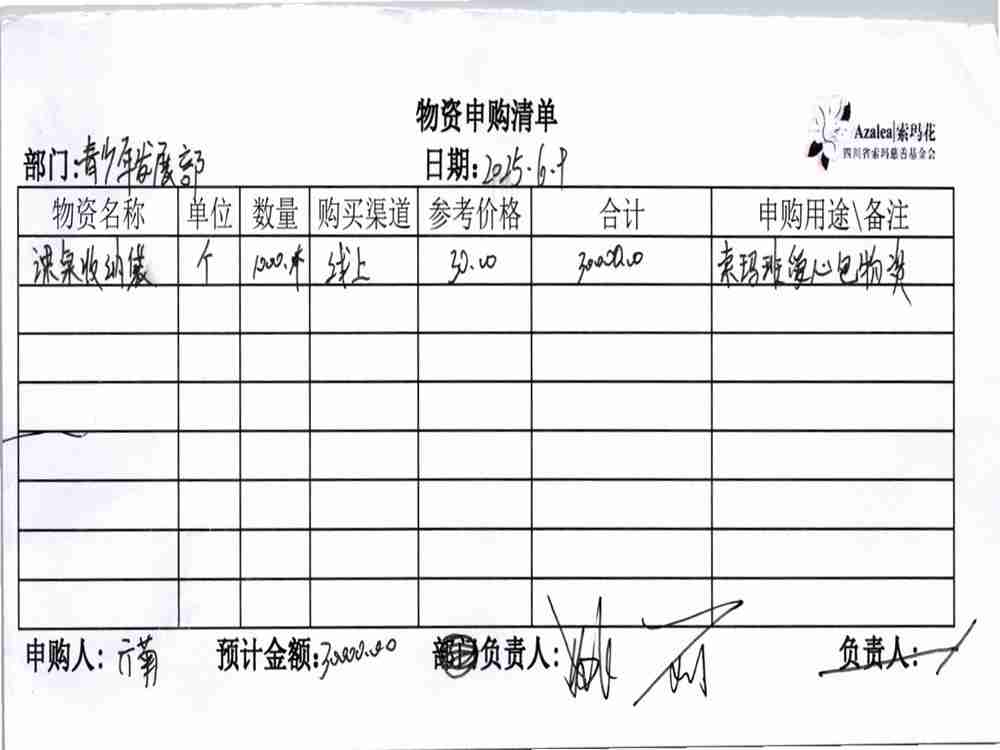 物资申购清单
Azalea|索玛花
四川省索玛慈善基金会
部门:青少年发展部 日期:2025.6.9
物资名称 单位 数量 购买渠道 参考价格 合计 申购用途\备注
课桌收纳袋 个 1000. 线上 30.00 30000.00 索玛班爱心包物资
申购人: 预计金额:30000.00 部门负责人: 负责人: